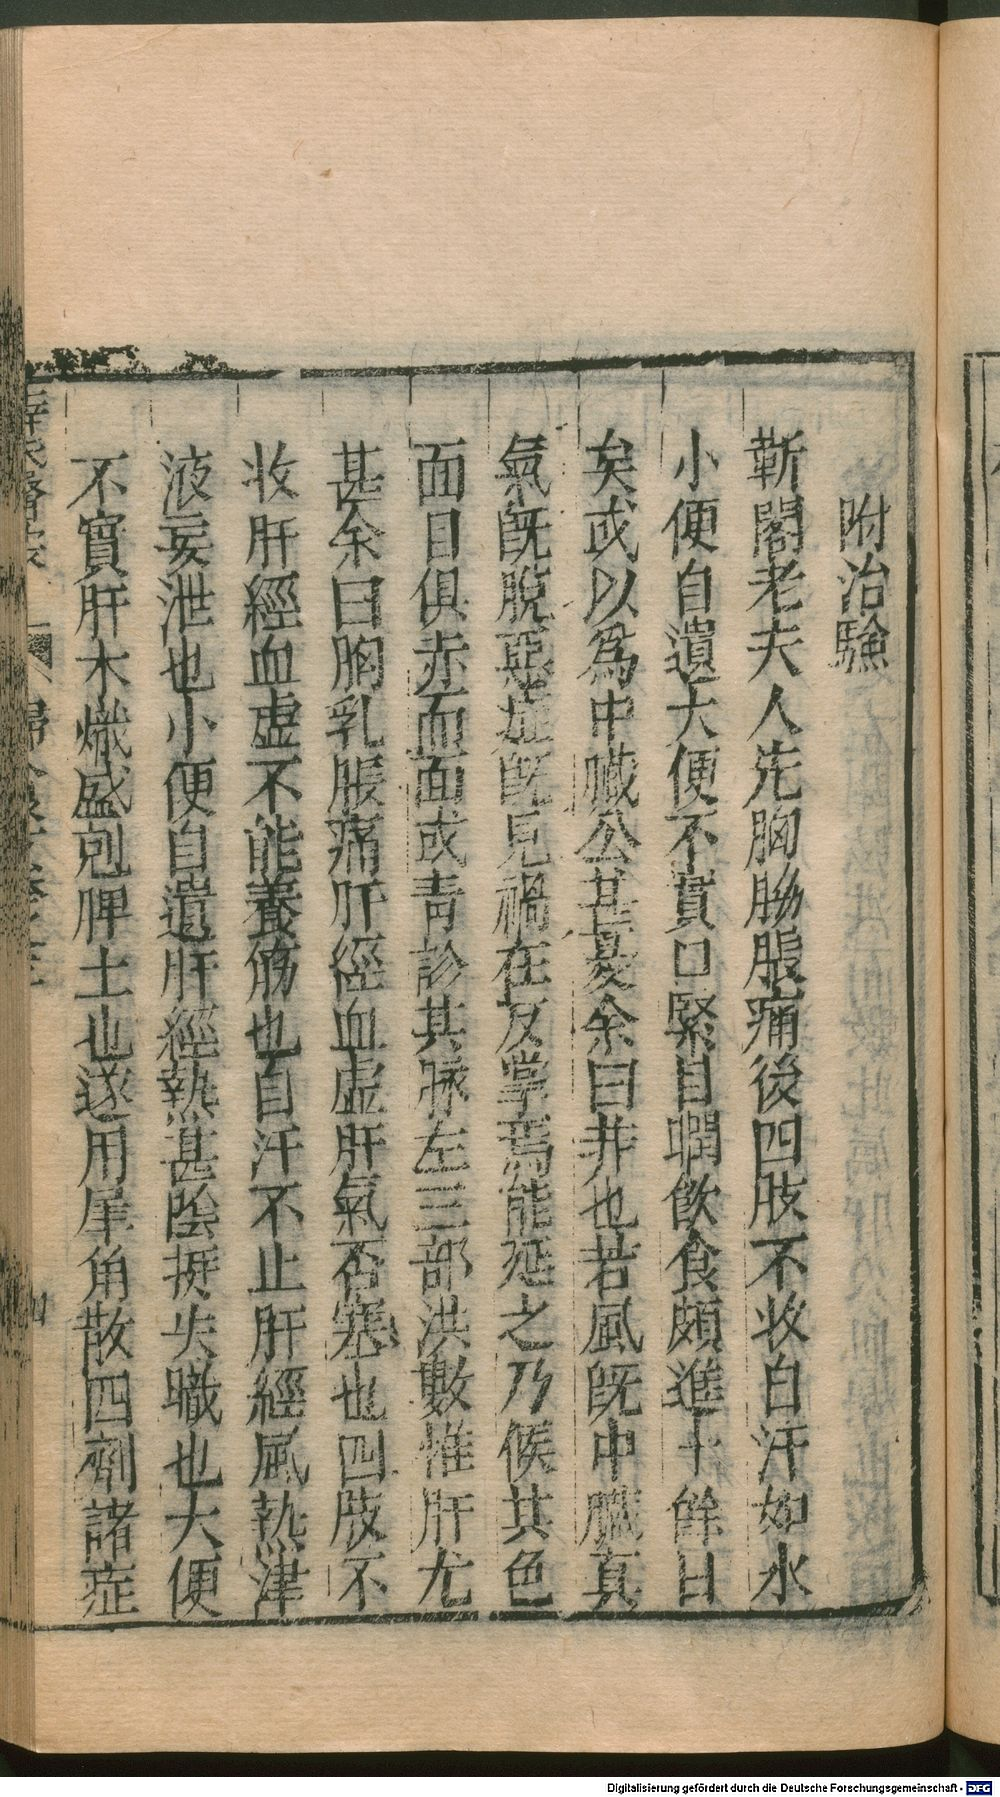 附治驗
靳閣老夫人先胸脇脹痛後四肢不收自汗如水
小便自遺大便不實口緊目瞤飲食頗進十餘日
矣或以爲中臟公甚憂余曰非也若風既中臟真
氣既脫惡症既見禍在反掌焉能延之乃候其色
面目俱赤而面或青診其脉左三部洪數惟肝尤
甚余曰胸乳脹痛肝經血虛肝氣否塞也四肢不
收肝經血虛不能養筋也自汗不止肝經風熱津
液妄泄也小便自遺肝經熱甚陰挺失職也大便
不實肝木熾盛剋脾土也遂用犀角散四劑諸症
Digitalisierung gefördert durch die Deutsche Forschungsgemeinschaft - DFG